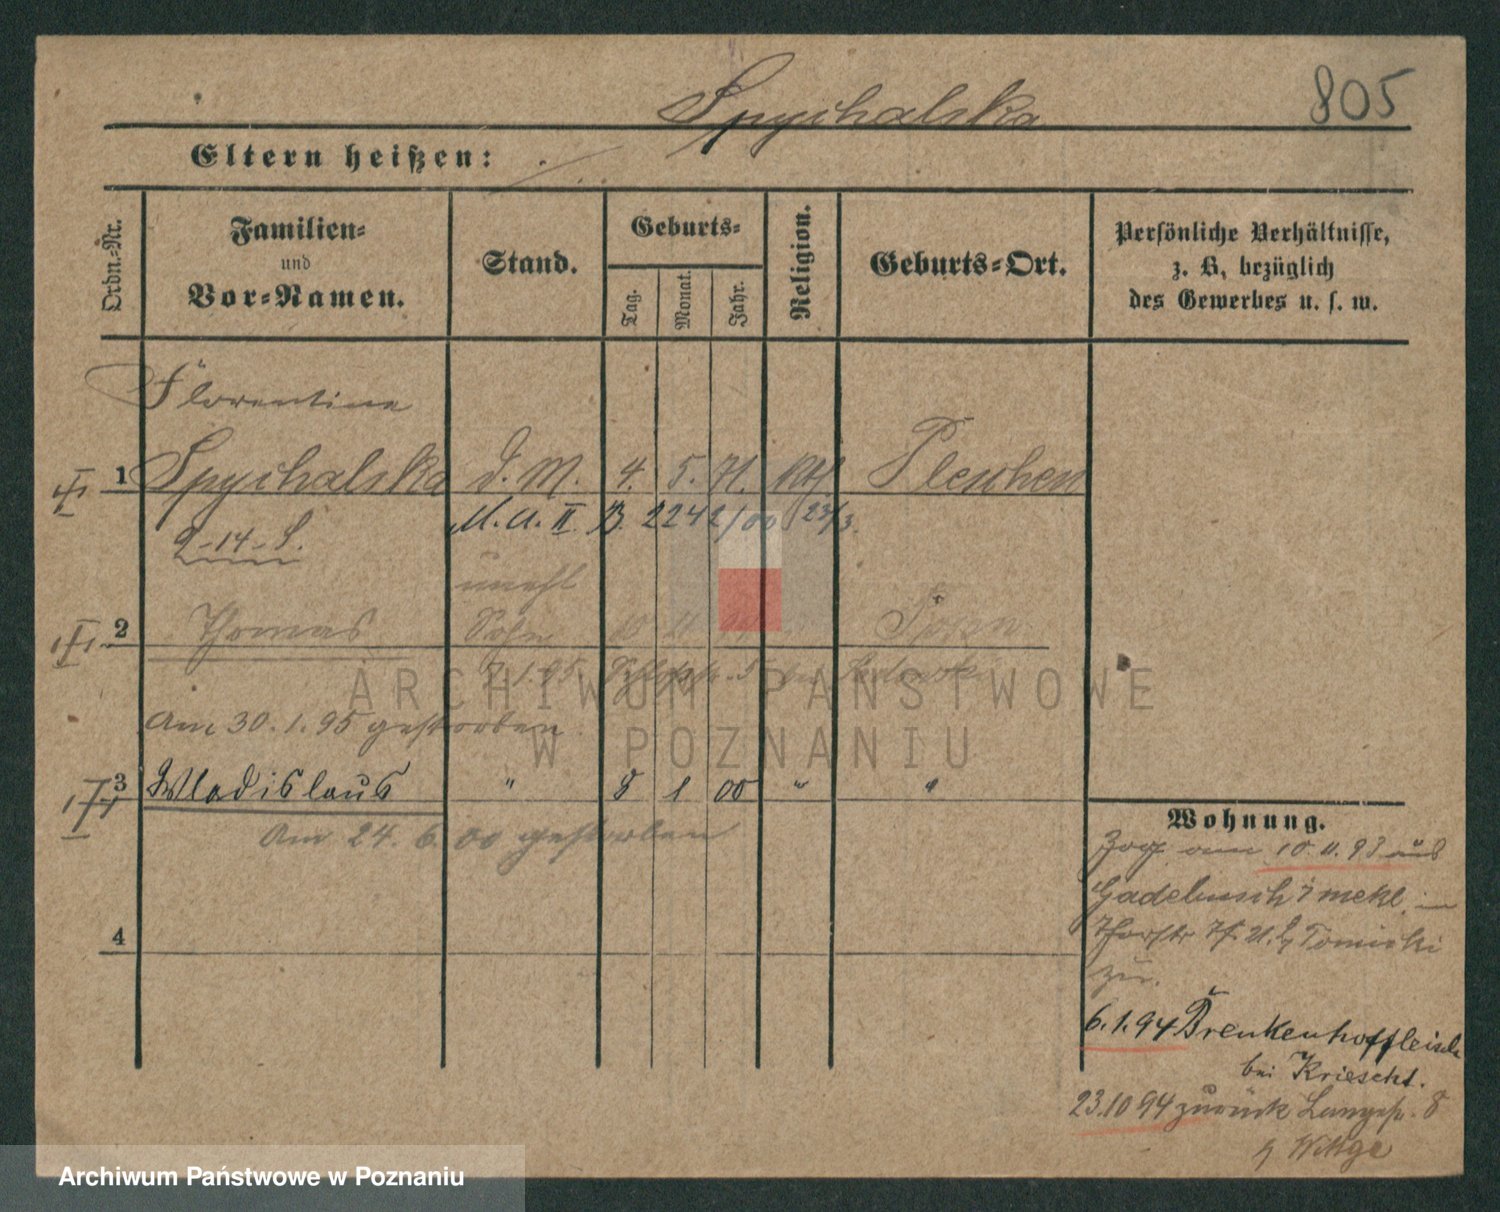 Spychalska
805
Eltern heißen:
Ordn.-Nr.
Familien-
und
Vor-Namen.
Stand.
Geburts-
Tag.
Monat.
Jahr.
Religion.
Geburts-Ort.
Persönliche Verhältnisse,
z. B. bezüglich
des Gewerbes u. s. w.
Florentine
1 Spychalska d. M. 4. 5. 71. kth Pleschen
M. A. II B. 224 2/00 23/3.
unehl
2 Thomas Sohn Posen
7.1.95
Am 30.1.95 gestorben
3 Wladislaus " 8 1 00 " "
Am 24. 6. 00 gestorben
4
Wohnung.
Zog am 10.11.93 aus
Gadebusch i mekl. in
Tomicki
zu.
6.1.94 Brenkenhoffleisch
bei Kriescht.
23.10 94 zurück Langestr. 8
b Wittge
ARCHIWUM PAŃSTWOWE
W POZNANIU
Archiwum Państwowe w Poznaniu